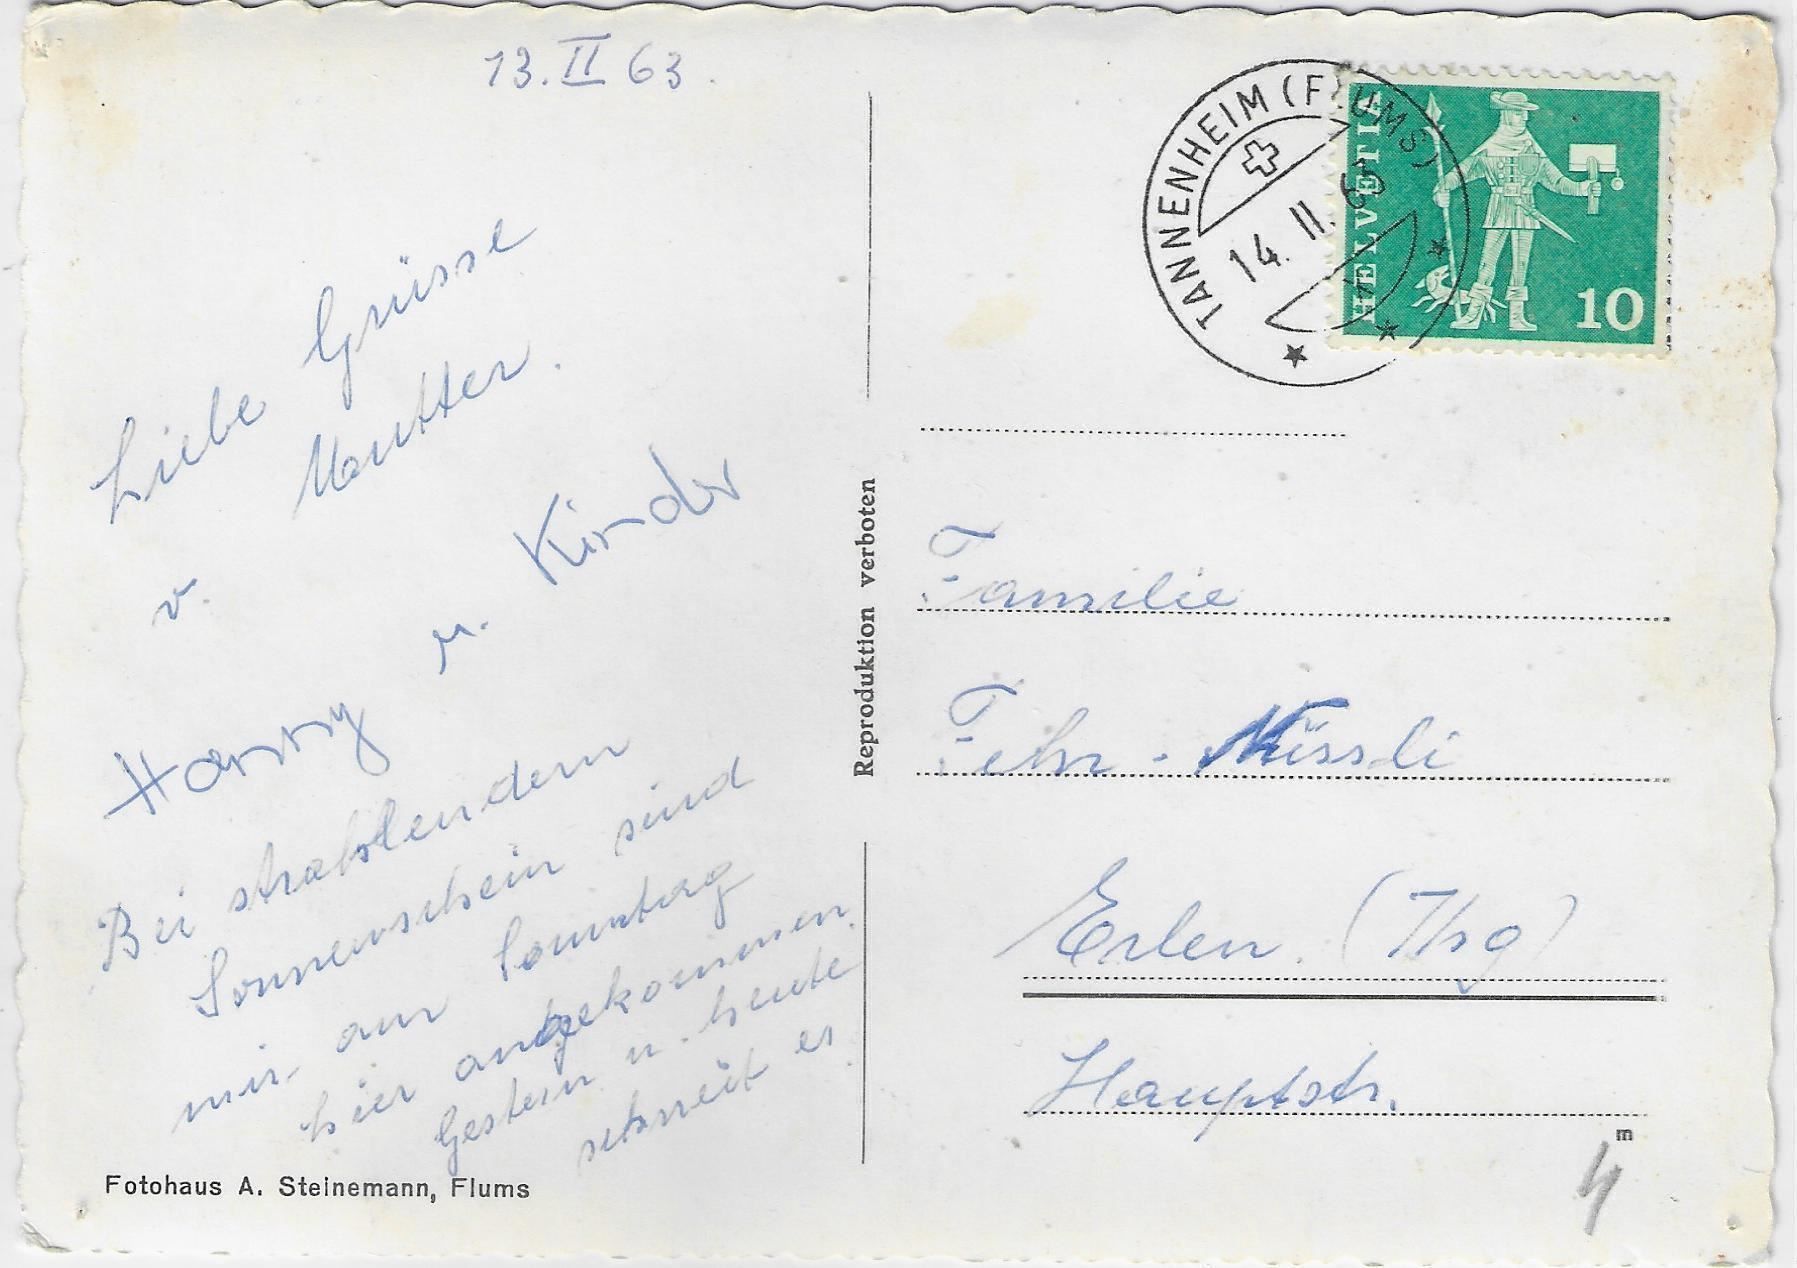 13. II 63.
Liebe Grüsse
Mutter.
v.
Harry u. Kinder
Bei strahlendem
Sonnenschein sind
wir am Sonntag
hier angekommen.
Gestern u. heute
schneit es
Fotohaus A. Steinemann, Flums
Reproduktion verboten
TANNENHEIM (FLUMS)
14. II. 63
HELVETIA
10
Familie
Fehr - Nüssli
Erlen. (Thg)
Hauptstr.
m
4